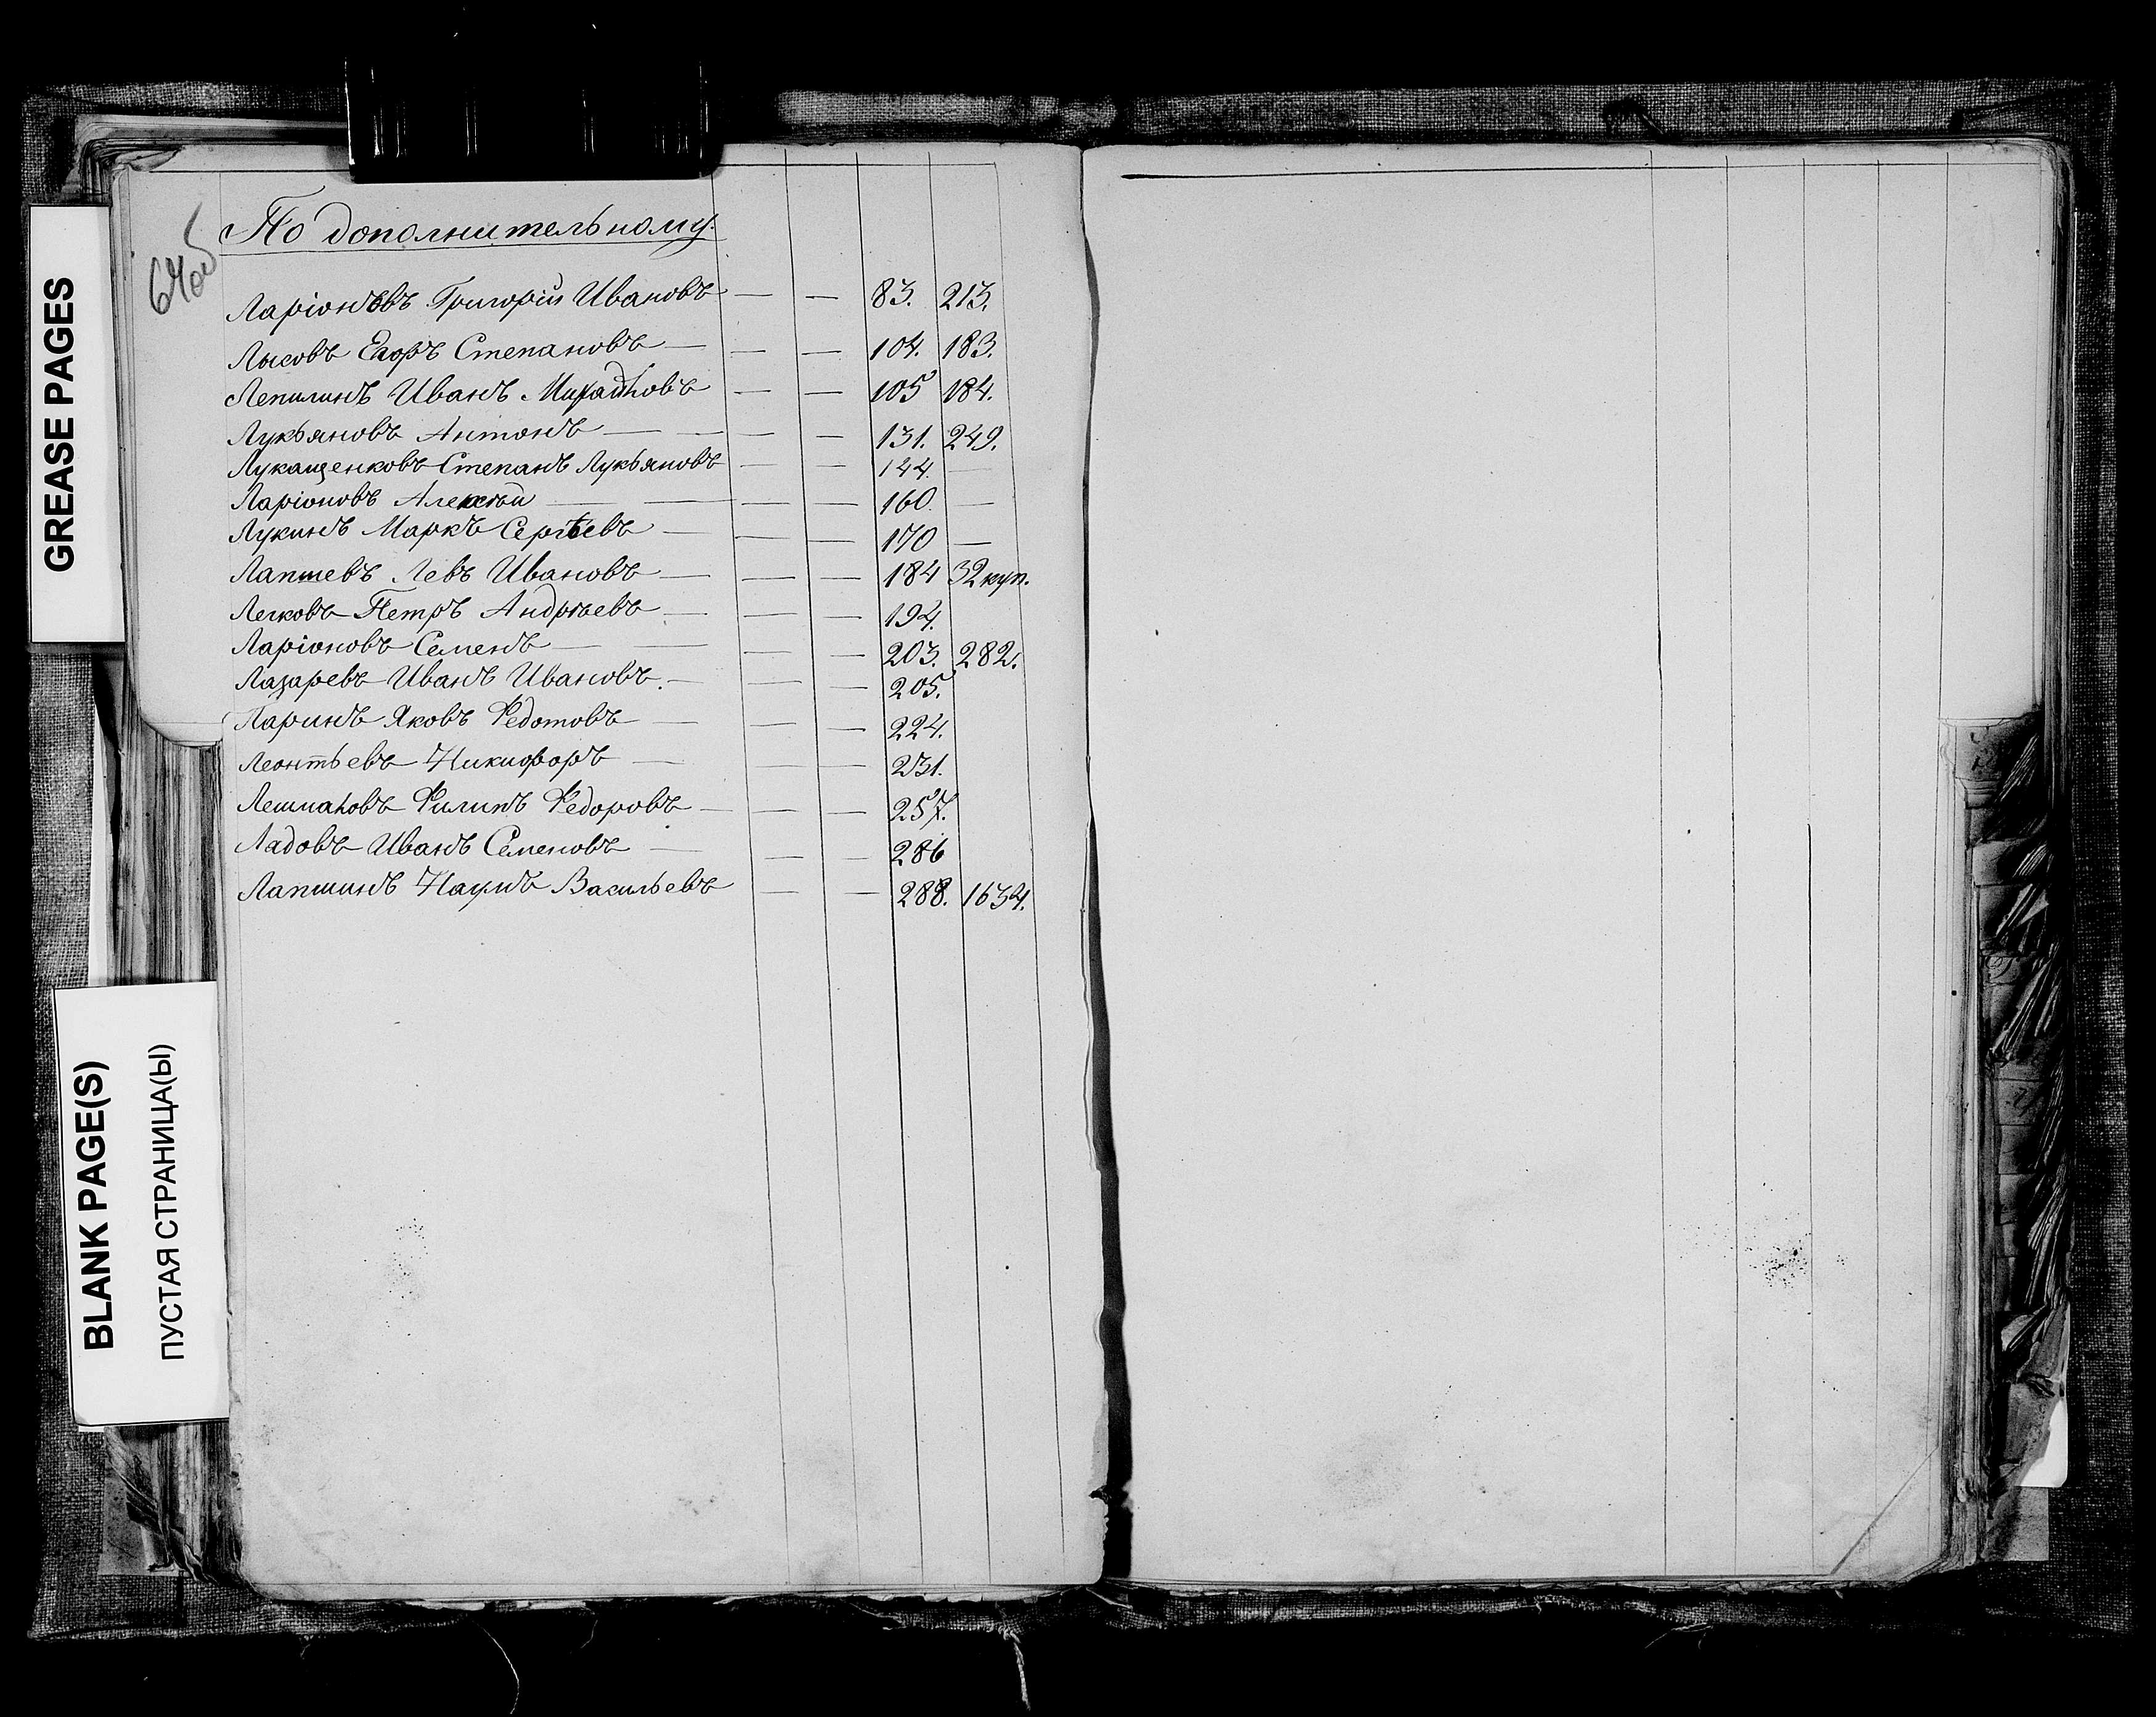 GREASE PAGES
BLANK PAGE(S)
ПУСТАЯ СТРАНИЦА(Ы)
64об
По дополнительному.
Ларіоновъ Григорій Ивановъ — — 83. 213.
Лысовъ Егоръ Степановъ — — — 104. 183.
Лепилинъ Иванъ Михайловъ — — 105 184.
Лукьяновъ Антонъ — — — — 131. 249.
Лукащенковъ Степанъ Лукьяновъ — — 144. —
Ларіоновъ Алексѣй — — — — 160. —
Лукинъ Маркъ Сергѣевъ — — — 170 —
Лапшевъ Левъ Ивановъ — — — 184 32 куп.
Легковъ Петръ Андрѣевъ — — — 194.
Ларіоновъ Семенъ — — — — 203. 282.
Лазаревъ Иванъ Ивановъ. — — — 205.
Ларинъ Яковъ Федотовъ — — — 224.
Леонтьевъ Никифоръ — — — 231.
Лешмановъ Филипъ Федоровъ — — — 257.
Ладовъ Иванъ Семеновъ — — — 286
Лапшинъ Наумъ Васильевъ — — 288. 1634.